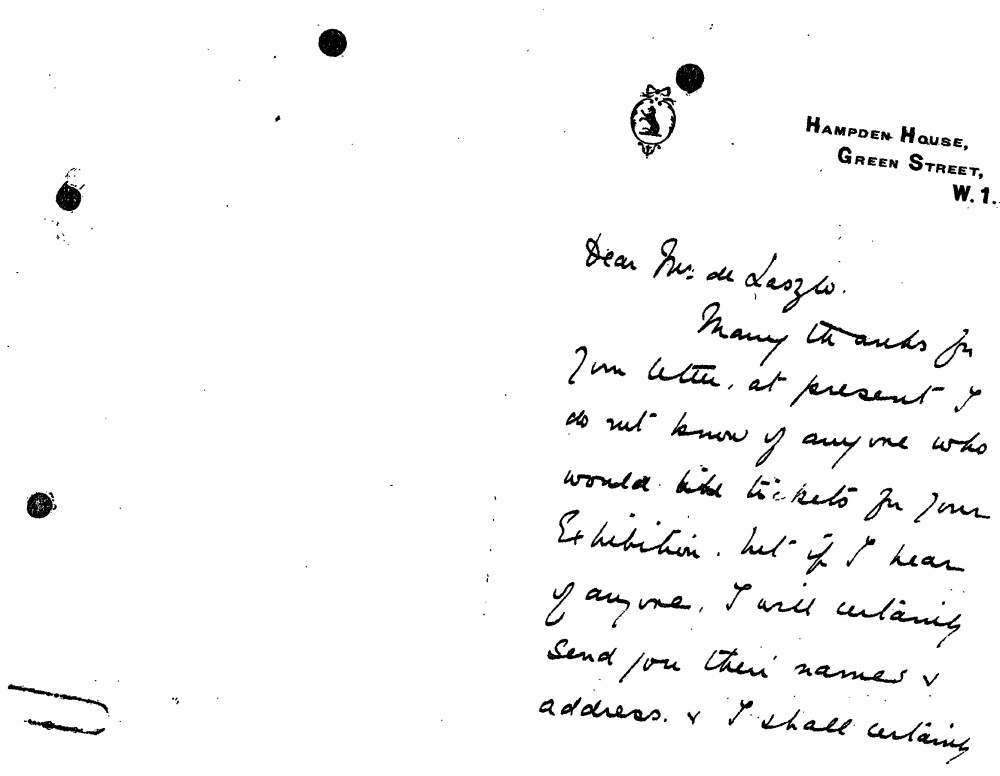 HAMPDEN HOUSE,
GREEN STREET,
W.1.
Dear Mr: de Laszlo.
Many thanks for
your letter. at present I
do not know of anyone who
would like tickets for your
Exhibition. but if I hear
of anyone. I will certainly
send you their names &
address. & I shall certainly